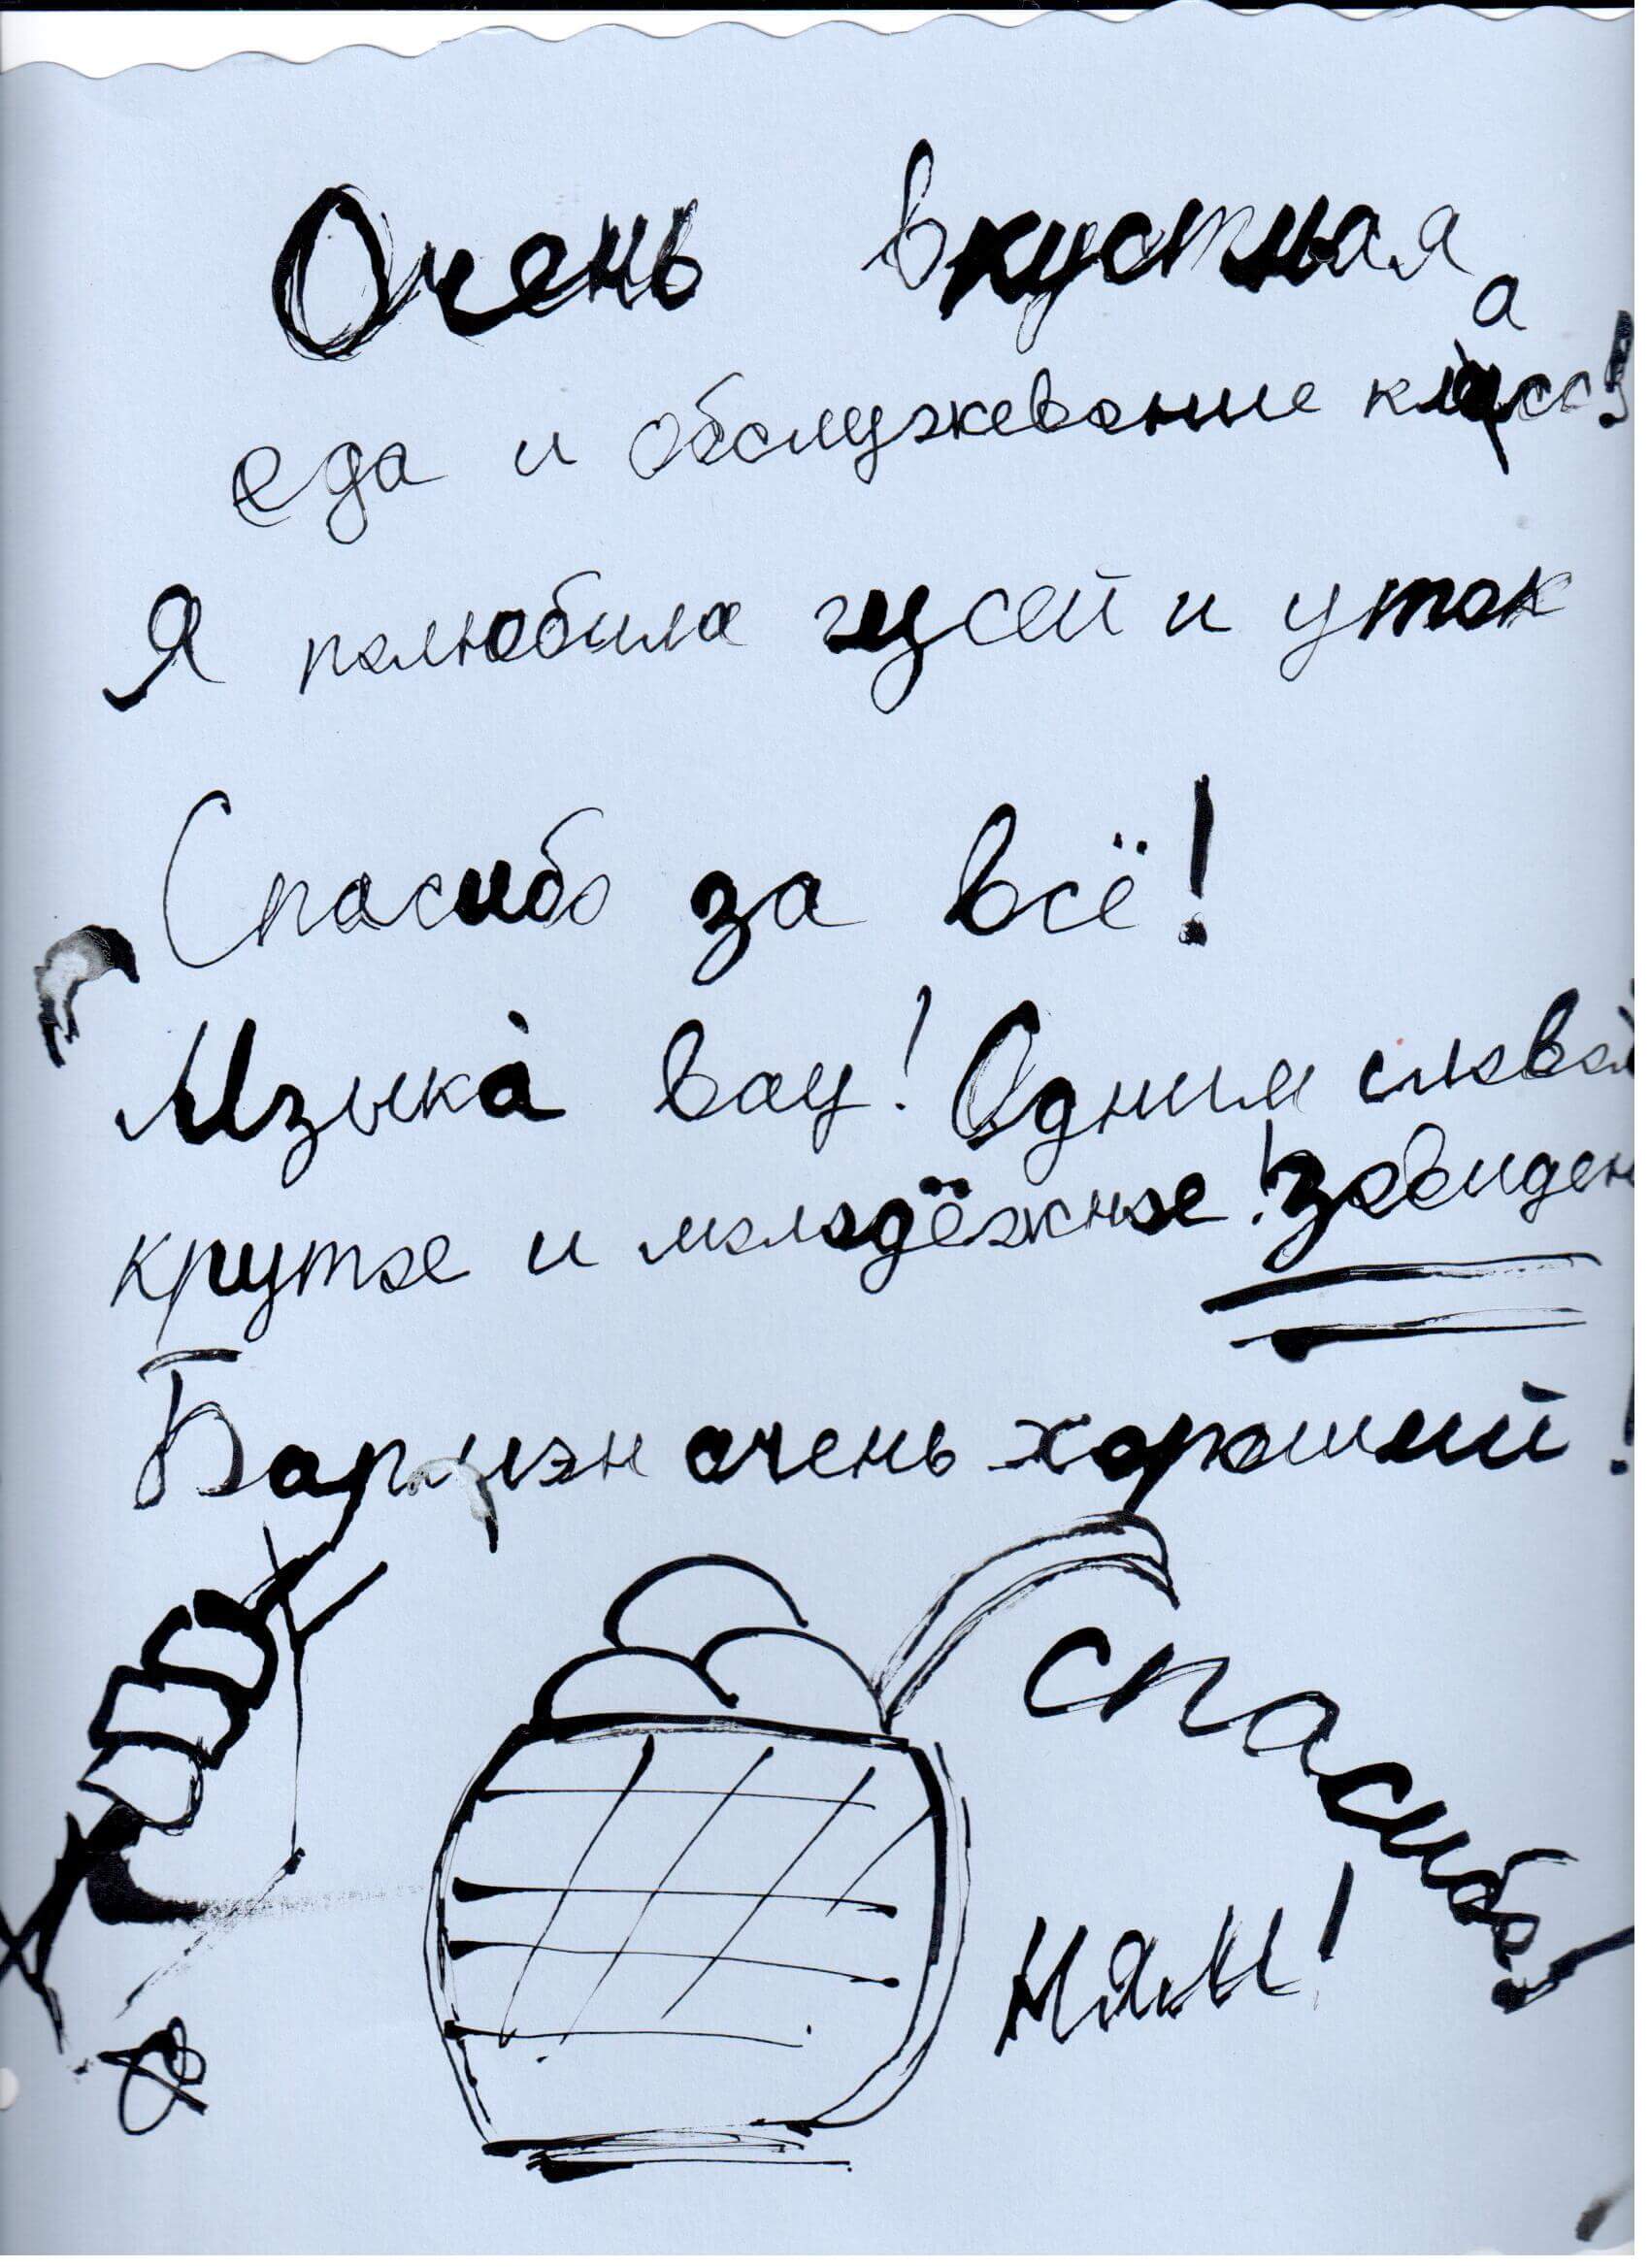 Очень вкустная
еда и обслужевание класс!
а
Я полюбила гусей и уток
Спасибо за всё!
Мзыка вау! Одним словом
крутое и молодёжное!
Бармэн очень хороший!
спасибо!
ням!